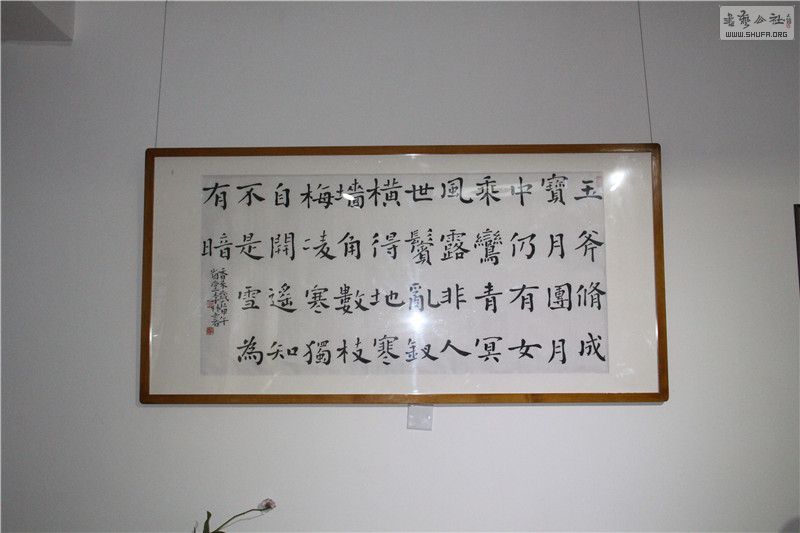 玉斧脩成
寶月團月
中仍有女
乘鸞青冥
風露非人
世鬢亂釵
橫得地寒
墻角數枝
梅凌寒獨
自開遙知
不是雪為
有暗
香來
書藝公社
WWW.SHUFA.ORG